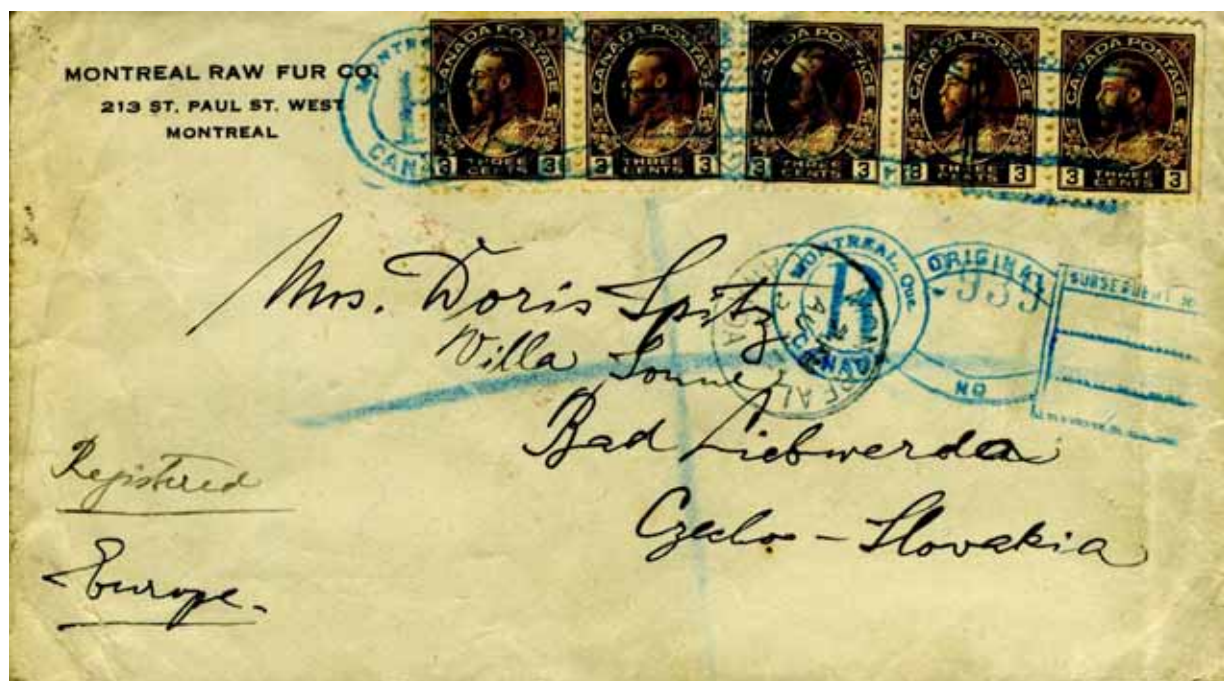 MONTREAL RAW FUR CO.
213 ST. PAUL ST. WEST
MONTREAL
CANADA POSTAGE
3 THREE CENTS 3
CANADA POSTAGE
3 THREE CENTS 3
CANADA POSTAGE
3 THREE CENTS 3
CANADA POSTAGE
3 THREE CENTS 3
CANADA POSTAGE
3 THREE CENTS 3
MONTREAL, Que.
R
CANADA
ORIGINAL
NO
Mrs. Doris Spitz
Villa Sonne
Bad Liebwerda
Czecho-Slovakia
Registered
Europe.